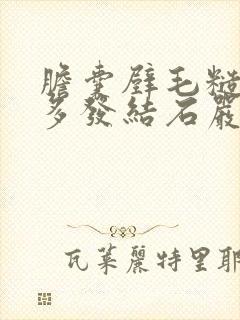 膽囊壁毛糙
多發結石嚴
瓦萊麗特里耶